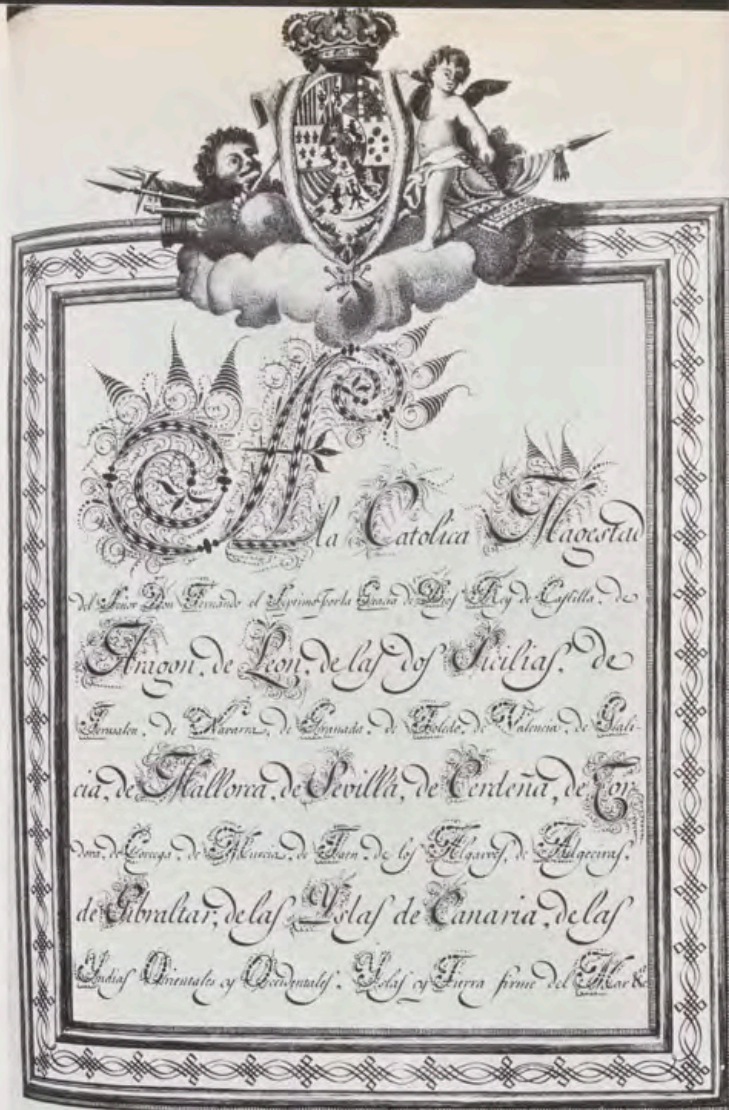 A la Catolica Magestad
del Señor Don Fernando el Septimo por la Gracia de Dios Rey de Castilla, de
Aragon, de Leon, de las dos Sicilias, de
Jerusalen, de Navarra, de Granada, de Toledo, de Valencia, de Gali-
cia, de Mallorca, de Sevilla, de Cerdeña, de Cor-
dova, de Corcega, de Murcia, de Jaen, de los Algarves, de Algeciras,
de Gibraltar, de las Yslas de Canaria, de las
Yndias Orientales y Occidentales, Yslas y Tierra firme del Mar &c